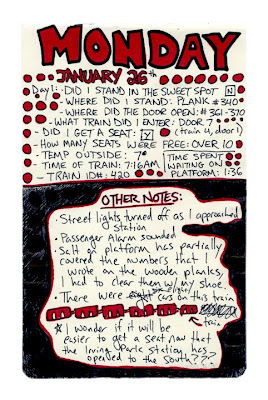 MONDAY
JANUARY 26th
Day 1: - DID I STAND IN THE SWEET SPOT [N]
- WHERE DID I STAND: PLANK #340
- WHERE DID THE DOOR OPEN: #361-370
- WHAT TRAIN DID I ENTER: DOOR 7
- DID I GET A SEAT: [Y] (train 4, door 1)
- HOW MANY SEATS WERE FREE: OVER 10
- TEMP OUTSIDE: 7°
- TIME OF TRAIN: 7:16AM
- TRAIN ID#: 420
TIME SPENT
WAITING ON
PLATFORM: 1:36
OTHER NOTES:
• Street lights turned off as I approached
station
• Passenger Alarm sounded
• Salt on platform has partially
covered the numbers that I
wrote on the wooden planks,
I had to clear them w/ my shoe.
• There were eight cars on this train
train
* I wonder if it will be
easier to get a seat now that
the Irving Park station has
opened to the south???